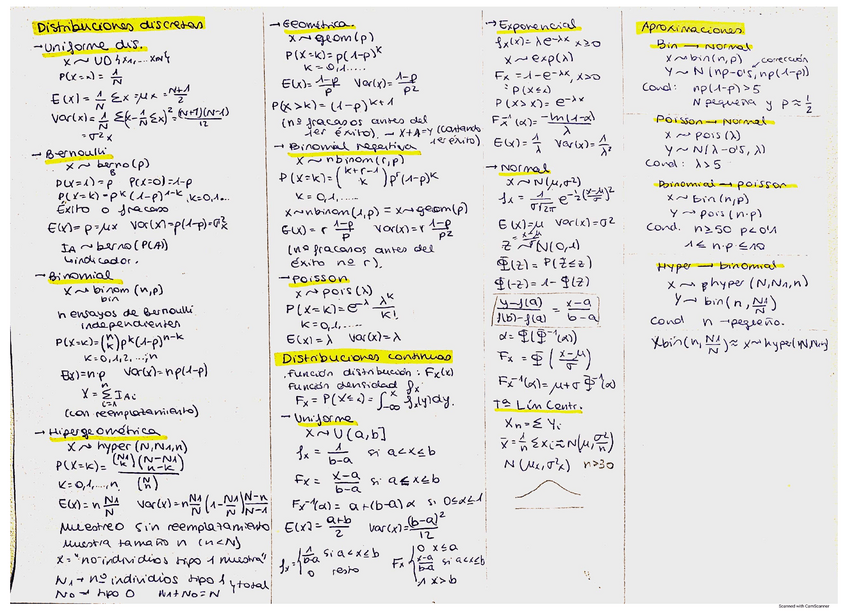 Distribuciones discretas
→ Uniforme dis.
X ~ U({x1,...xN})
P(X=x) = 1/N
E(x) = 1/N Σx = μx = N+1/2
Var(x) = 1/N Σ(x - 1/N Σx)² = (N+1)(N-1)/12
= σ²x
→ Bernoulli
X ~ berno(p)
B
P(X=1) = p P(X=0) = 1-p
P(X=k) = p^k (1-p)^1-k k=0,1...
Éxito o fracaso
E(x) = p = μx Var(x) = p(1-p) = σ²x
IA ~ berno(P(A))
↳ indicador.
→ Binomial
X ~ binom (n,p)
bin
n ensayos de Bernoulli
independientes
P(X=k) = (n k) p^k (1-p)^n-k
k = 0,1,2,...,n
E(x) = n·p Var(x) = np(1-p)
X = Σ i=1 n IAi
(con reemplazamiento)
→ Hipergeométrica
X ~ hyper (N,N1,n)
P(X=k) = (N1 k)(N-N1 n-k) / (N n)
k = 0,1,...,n
E(x) = n N1/N Var(x) = n N1/N (1 - N1/N) N-n/N-1
Muestreo sin reemplazamiento
muestra tamaño n (n<N)
X = "nº individios tipo 1 muestra"
N1 → nº individios tipo 1 y total
N0 → tipo 0 N1+N0=N
→ Geométrica.
X ~ geom(p)
P(X=k) = p(1-p)^k
k = 0,1,....
E(x) = 1-p/p Var(x) = 1-p/p²
P(X>k) = (1-p)^k+1
(nº fracasos antes del
1er éxito). → X+1=Y (contando
1er éxito)
→ Binomial Negativa
X ~ nbinom(r,p)
P(X=k) = (k+r-1 k) p^r (1-p)^k
k = 0,1,....
X ~ nbinom(1,p) = X ~ geom(p)
E(x) = r 1-p/p Var(x) = r 1-p/p²
(nº fracasos antes del
éxito nº r).
→ Poisson
X ~ pois(λ)
P(X=k) = e^-λ λ^k/k!
k = 0,1,....
E(x) = λ Var(x) = λ
Distribuciones continuas
. función distribución: Fx(x)
Función densidad fx.
Fx = P(X≤x) = ∫ -∞ x fx(y)dy.
→ Uniforme
X ~ U(a,b]
fx = 1/b-a si a<x≤b
Fx = x-a/b-a si a≤x≤b
Fx^-1(α) = a+(b-a)α si 0≤α≤1
E(x) = a+b/2 Var(x) = (b-a)²/12
fx = { 1/b-a si a<x≤b
0 resto
Fx { 0 x≤a
x-a/b-a si a<x≤b
1 x>b
→ Exponencial
fx(x) = λe^-λx x≥0
X ~ exp(λ)
Fx = 1-e^-λx, x>0
= P(X≤x)
P(X>x) = e^-λx
Fx^-1(α) = -ln(1-α)/λ
E(x) = 1/λ Var(x) = 1/λ²
→ Normal
X ~ N(μ,σ²)
fx = 1/σ√2π e^-1/2 (x-μ/σ)²
E(x)=μ Var(x)=σ²
Z = x-μ/σ ~ N(0,1)
Φ(z) = P(Z≤z)
Φ(-z) = 1-Φ(z)
y-f(a)/f(b)-f(a) = x-a/b-a
α = Φ(Φ^-1(α))
Fx = Φ(x-μ/σ)
Fx^-1(α) = μ+σ Φ^-1(α)
Tª Lím Centr.
Xn = Σ Yi
x̄ = 1/n Σxi ≈ N(μ, σ²/n)
N(μx, σ²x) n≥30
Aproximaciones.
Bin → Normal
X ~ bin(n,p) corrección
Y ~ N(np-0'5, np(1-p))
Cond: np(1-p)>5
N pequeña y p≈1/2
Poisson → Normal
X ~ pois(λ)
Y ~ N(λ-0'5, λ)
Cond: λ>5
Binomial → Poisson
X ~ bin(n,p)
Y ~ pois(n·p)
Cond. n≥50 p<0'1
1≤n·p≤10
Hyper → binomial
X ~ hyper (N,N1,n)
Y ~ bin(n, N1/N)
Cond n → pequeño.
X bin(n, N1/N) ≈ X ~ hyper(N,N1,n)
Scanned with CamScanner